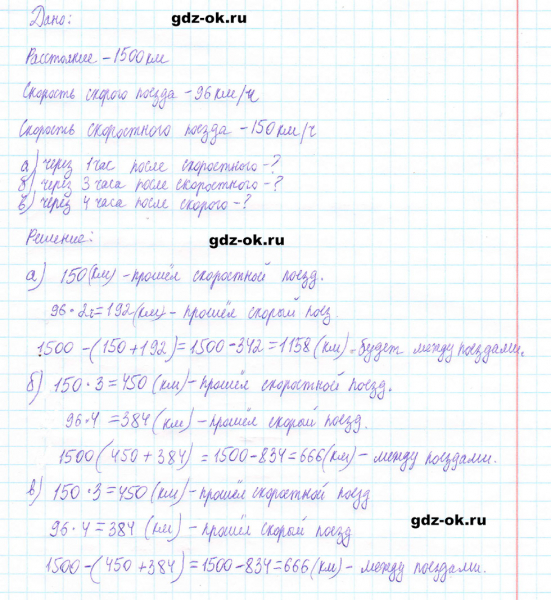 gdz-ok.ru
Дано:
Расстояние - 1500 км
Скорость скорого поезда - 96 км/ч
Скорость скоростного поезда - 150 км/ч
а) через 1 час после скоростного - ?
б) через 3 часа после скоростного - ?
в) через 4 часа после скорого - ?
Решение:
gdz-ok.ru
а) 150 (км) - прошёл скоростной поезд.
96 · 2 = 192 (км) - прошёл скорый поез.
1500 - (150 + 192) = 1500 - 342 = 1158 (км) - будет между поездами.
б) 150 · 3 = 450 (км) - прошёл скоростной поезд.
96 · 4 = 384 (км) - прошёл скорый поезд.
1500 (450 + 384) = 1500 - 834 = 666 (км) - между поездами.
в) 150 · 3 = 450 (км) - прошёл скоростной поезд
gdz-ok.ru
96 · 4 = 384 (км) - прошёл скорый поезд
1500 - (450 + 384) = 1500 - 834 = 666 (км) - между поездами.